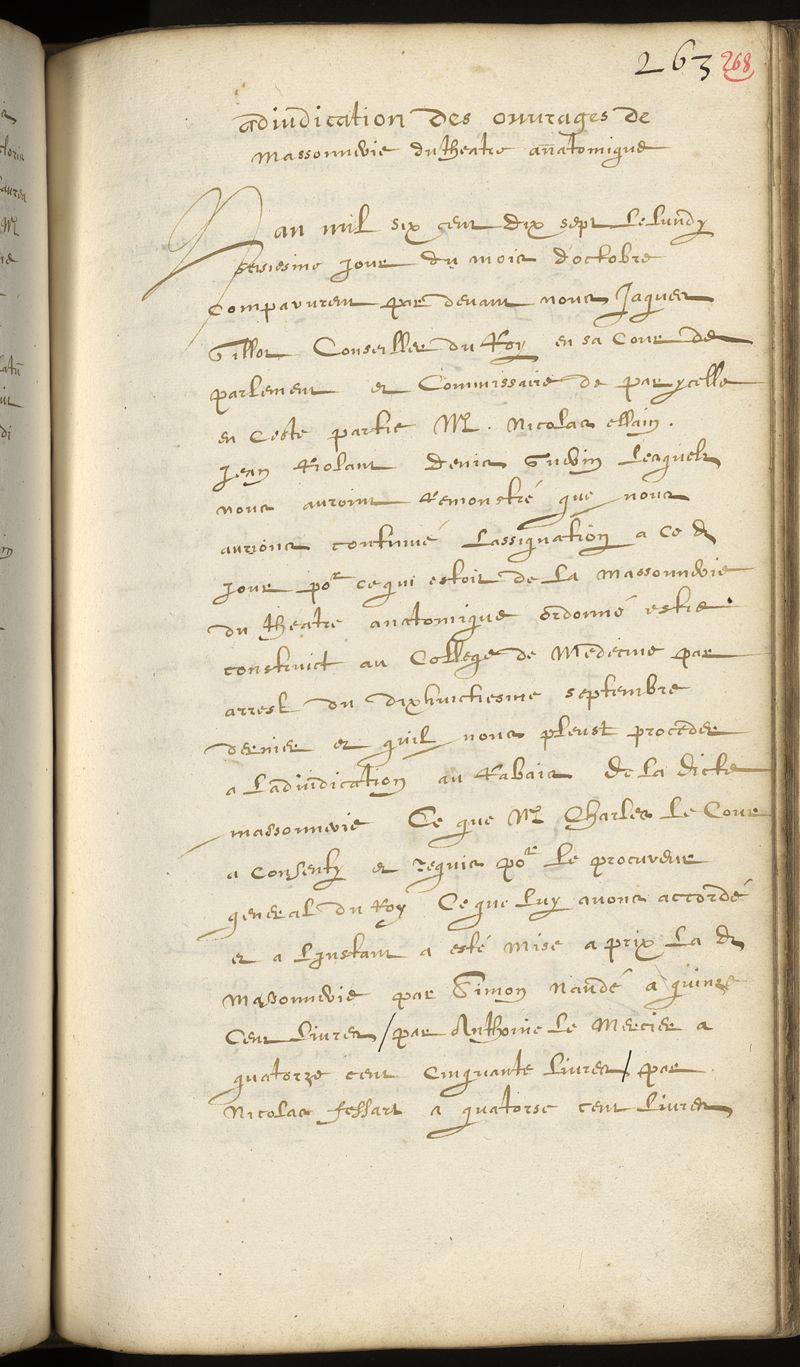 263 268
adiudication des ouurages de
Massonnerie du theatre anatomique
Lan mil six cent dix sept Le Lundy
seiziesme jour du mois d'octobre
Comparurent par deuant nous Jaques
Gillot Conseiller du Roy en sa Cour de
parlement et Commissaire de par ycelle
en Ceste partie Mr. Nicolas ellain.
Jean Riolant Denis Guerin Lesquels
nous auroint Remonstré que nous
aurions continué Lassignation a ce d
jour por ce qui estoit de La Massonnerie
du theatre anatomique ordonné estre
construict au College de Medecine par
arrest du dixhuictiesme septembre
dernier et quil nous pleust proceder
a Ladiudication au Rabais de la dicte
massonnerie Ce que Mr Charles Le Cour
a Consenty et requis por Le procureur
general du Roy Ce que Luy auons accordé
et a Linstant a esté Mise a prix La d
Massonnerie par Simon Naudé a quinze
Cent Liures / par Anthoine Le Mercier a
quatorze cent Cinquante Liures / par
Nicolas fessart a quatorse cent Liures